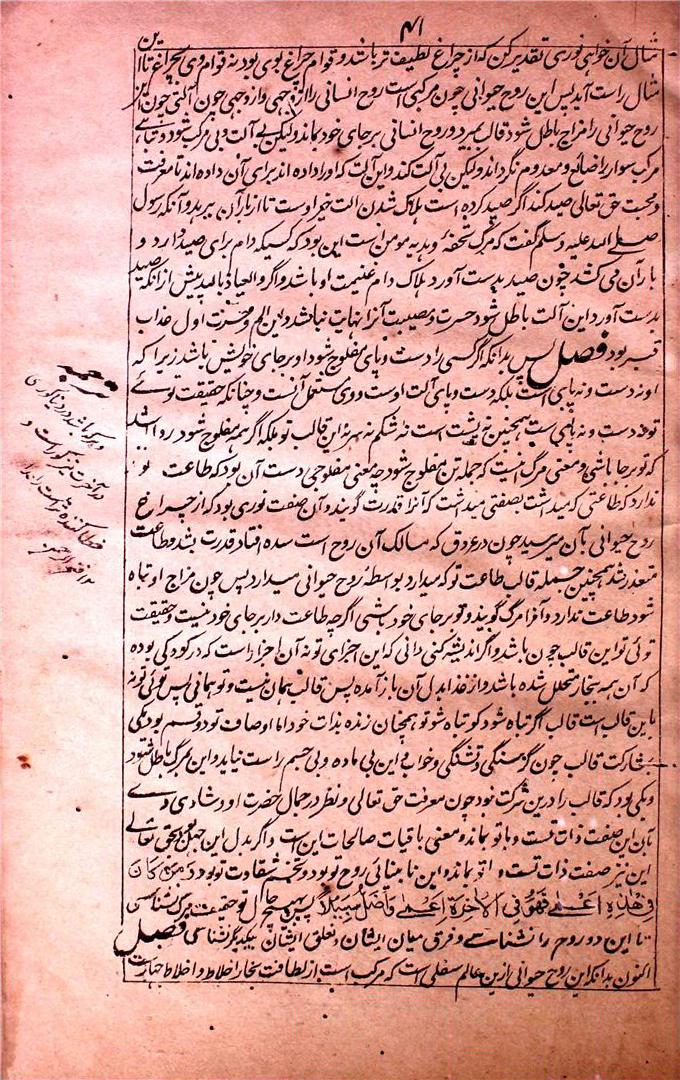 ۴۱
مثال آن خواهی نوری تقدیر کن که از چراغ لطیف تر باشد و قوام چراغ بوی بود نه قوام وی بچراغ تا این
مثال راست آید پس این روح حیوانی چون مرکبی است روح انسانی را از وجهی و از وجهی چون آلتی چون این
روح حیوانی را مزاج باطل شود قالب بمیرد و روح انسانی بر جای خود بماند ولیکن بی آلت و بی مرکب شود و تباهی
مرکب سوار را ضائع و معدوم نگرداند ولیکن بی آلت کند و این آلت که او را داده اند برای آن داده اند تا معرفت
و محبت حق تعالی صید کند اگر صید کرده است هلاک شدن آلت خیر اوست تا از بار آن برهد و آنکه رسول
صلی الله علیه وسلم گفت که مرگ تحفه و هدیه مومن است این بود که کسیکه دام برای صید دارد و
بار آن می کشد چون صید بدست آورد هلاک دام غنیمت او باشد و اگر والعیاذ بالله پیش از آنکه صید
بدست آورد این آلت باطل شود حسرت و مصیبت آنرا نهایت نباشد و این الم و حسرت اول عذاب
قبر بود فصل پس بدانکه اگر کسی را دست و پای مفلوج شود او بر جای خویش باشد زیرا که
او نه دست و نه پای است بلکه دست و پای آلت اوست و وی مستعمل آنست و چنانکه حقیقت توئی
تو نه دست و نه پای ست همچنین نه پشت است نه شکم نه سر نه این قالب تو بلکه اگر همه مفلوج شود روا باشد
که تو بر جا باشی و معنی مرگ اینست که جمله تن مفلوج شود چه معنی مفلوجی دست آن بود که طاعت تو
ندارد که طاعتی که میداشت بصفتی میداشت که آنرا قدرت گویند و آن صفت نوری بود که از چراغ
روح حیوانی بآن میرسید چون در عروق که مسالک آن روح است سده افتاد قدرت بشد و طاعت
متعذر شد همچنین جمله قالب طاعت تو که میدارد بواسطهٔ روح حیوانی میدارد پس چون مزاج او تباه
شود طاعت ندارد و آنرا مرگ گویند و تو بر جای خود باشی اگرچه طاعت دار بر جای خود نیست و حقیقت
توئی تو این قالب چون باشد و اگر اندیشه کنی دانی که این اجزای تو نه آن اجزاست که در کودکی بوده
که آن همه ببخار متحلل شده باشد و از غذا بدل آن باز آمده پس قالب همان نیست و تو همانی پس توئی تو نه
باین قالب است قالب اگر تباه شود گو تباه شو تو همچنان زنده بذات خود اما اوصاف تو دو قسم بود یکی
بمشارکت قالب چون گرسنگی و تشنگی و خواب و این بی ماده و بی جسم راست نیاید و این بمرگ باطل شود
و یکی بود که قالب را درین شرکت نبود چون معرفت حق تعالی و نظر در جمال حضرت او و شادی وی
بآن این صفت ذات تست و با تو بماند و معنی باقیات صالحات این است و اگر بدل این جهل بود بحق تعالی
این نیز صفت ذات تست و با تو بماند و این نابینائی روح تو بود و تخم شقاوت تو بود وَمَنْ كَانَ
فِي هٰذِهٖ اَعْمٰى فَهُوَ فِي الْاٰخِرَةِ اَعْمٰى وَاَضَلُّ سَبِيْلًا پس بهیچ حال تو حقیقت مرگ نشناسی
تا این دو روح را نشناسی و فرق میان ایشان و تعلق ایشان بیکدیگر نشناسی فصل
اکنون بدانکه این روح حیوانی ازین عالم سفلی است که مرکب است از لطافت بخار اخلاط و اخلاط چهارست
ترجمه
و هر که باشد در دنیا کور پس
در آخرت نیز کور است و